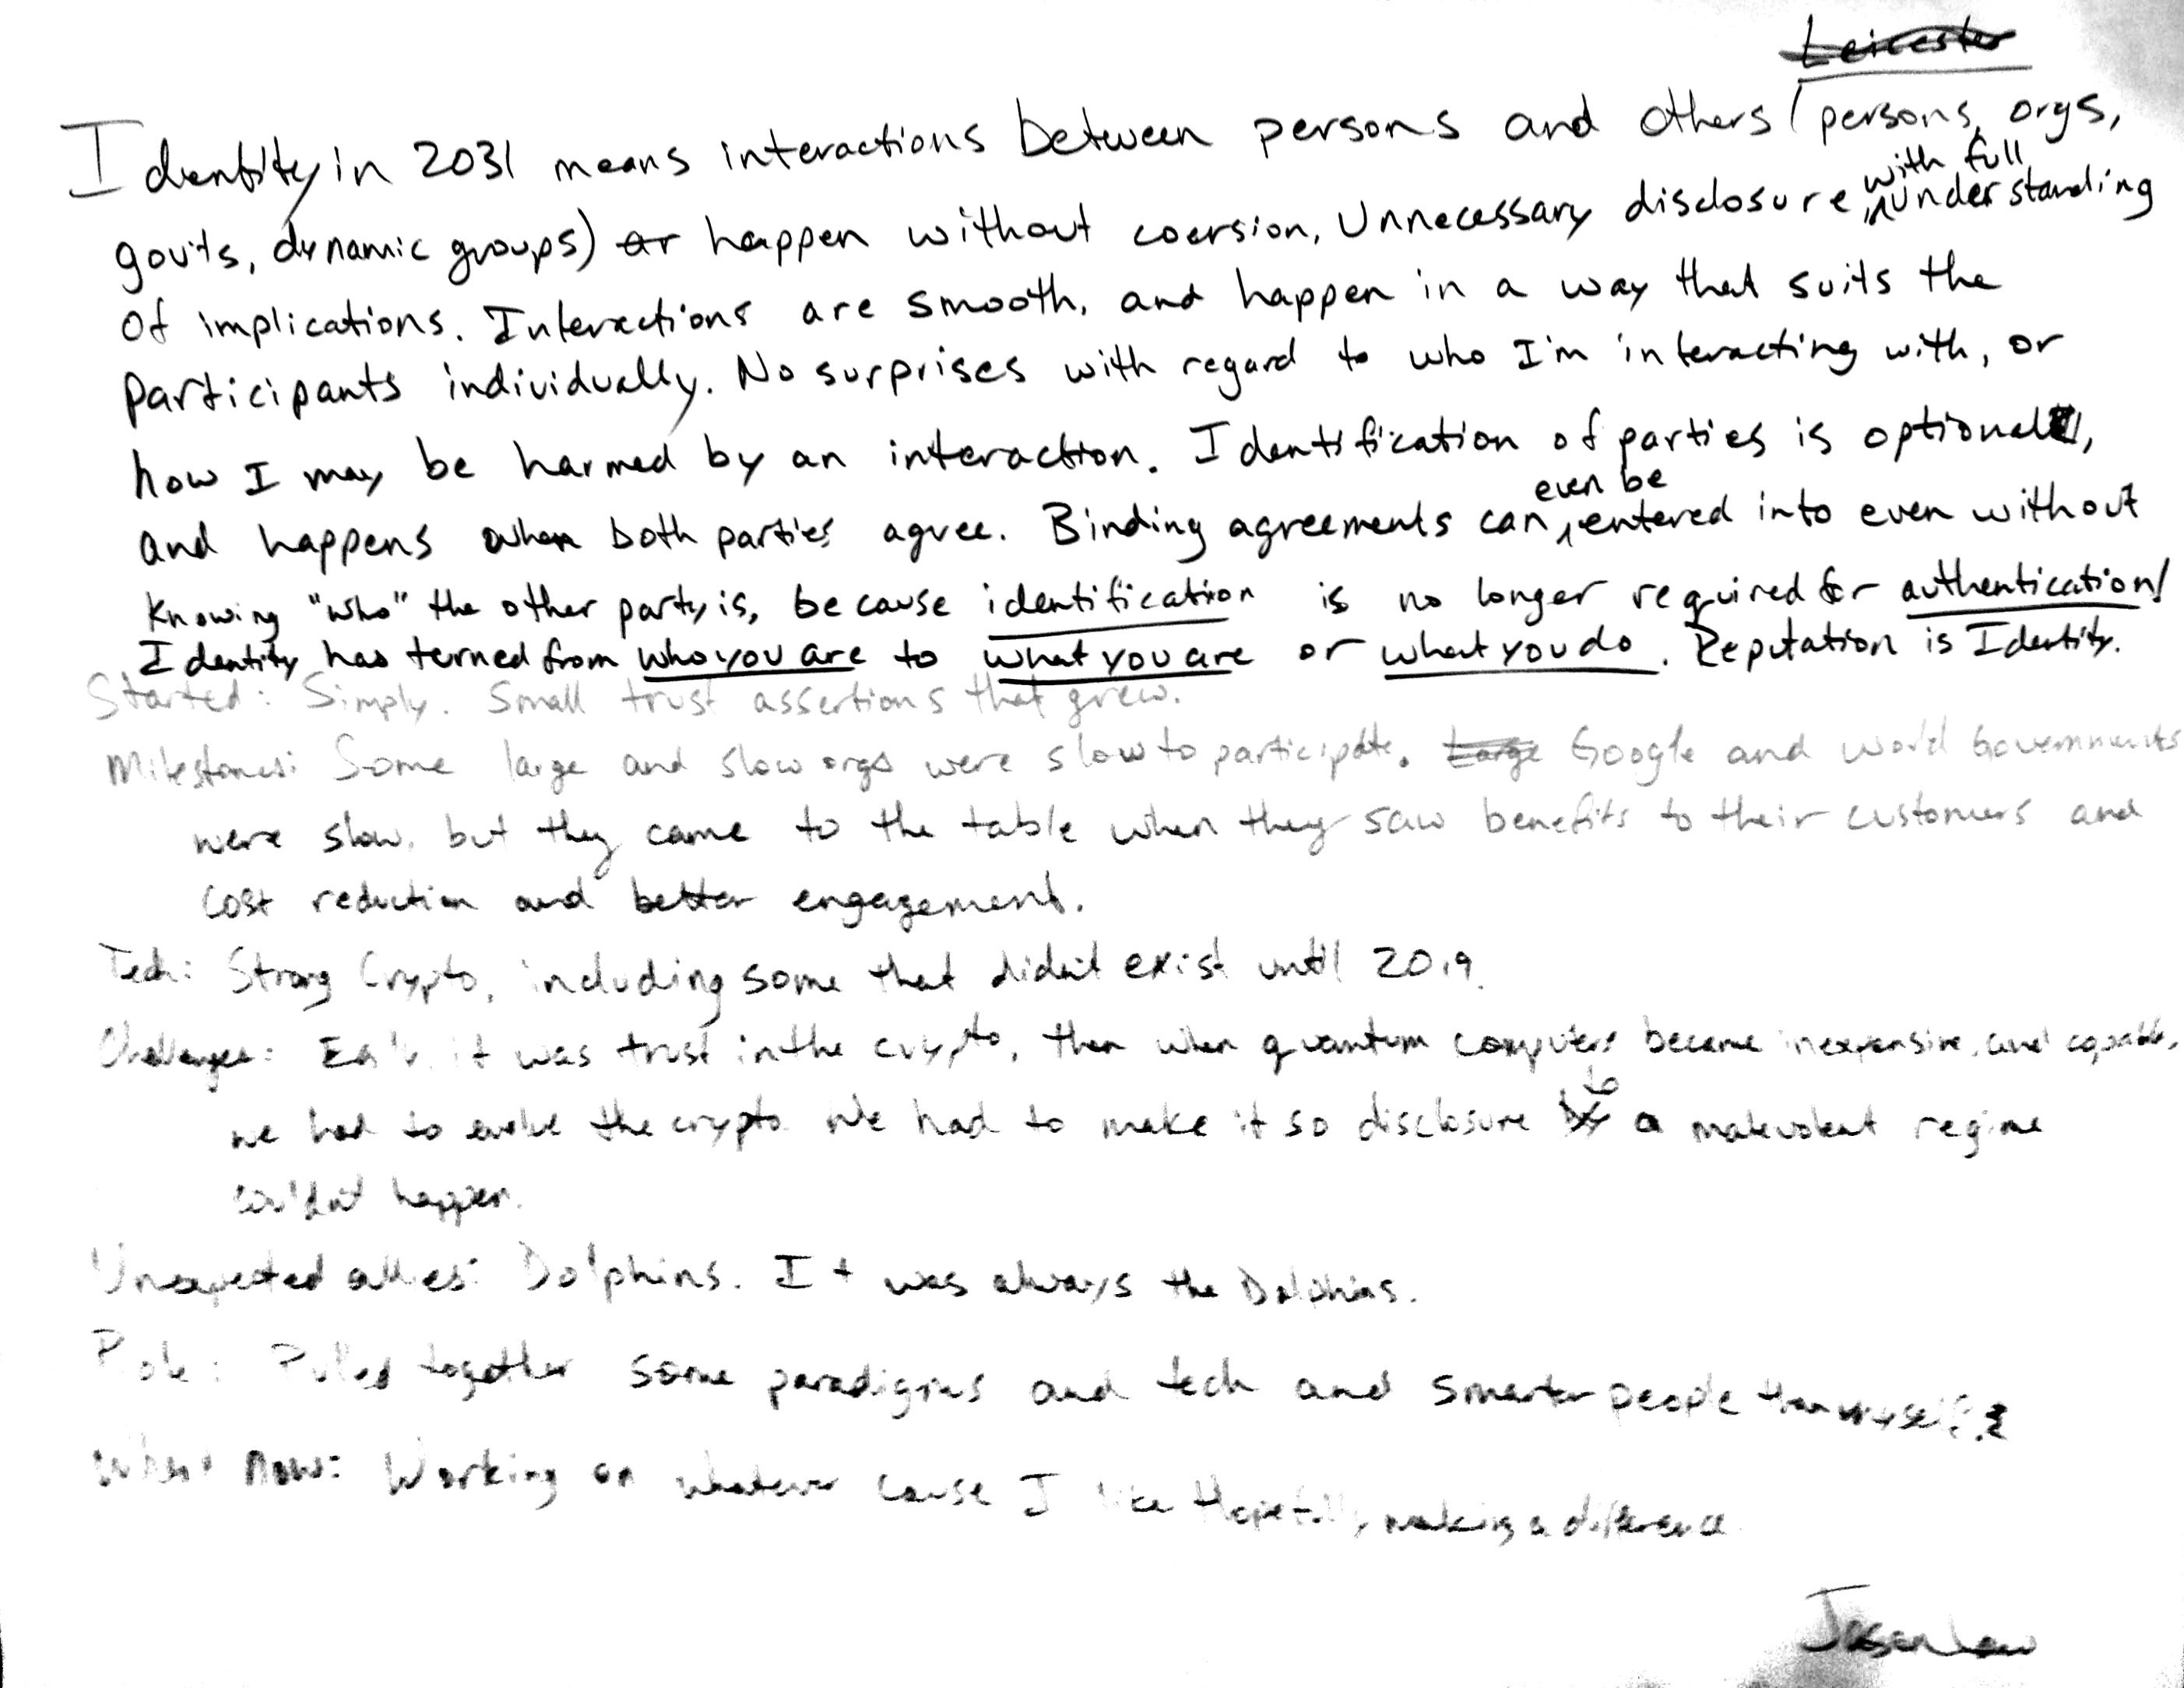 Leicester
Identity in 2031 means interactions between persons and others (persons, orgs,
with full
gov'ts, dynamic groups) or happen without coersion, Unnecessary disclosure, understanding
Of implications. Interactions are smooth, and happen in a way that suits the
Participants individually. No surprises with regard to who I'm interacting with, or
how I may be harmed by an interaction. Identification of parties is optional,
even be
and happens when both parties agree. Binding agreements can entered into even without
Knowing "who" the other party is, because identification is no longer required for authentication!
Identity has turned from who you are to what you are or what you do. Reputation is Identity.
Started: Simply. Small trust assertions that grew.
Milestones: Some large and slow orgs were slow to participate. Large Google and world Governments
were slow, but they came to the table when they saw benefits to their customers and
cost reduction and better engagement.
Tech: Strong Crypto, including some that didn't exist until 2019.
Challenges: Early it was trust in the crypto, then when quantum computers became inexpensive, and capable,
to
we had to evolve the crypto. We had to make it so disclosure by a malevolent regime
couldn't happen.
Unexpected allies: Dolphins. It was always the Dolphins.
Role: Pulled together some paradigms and tech and smarter people than myself.
What Now: Working on whatever cause I like Hopefully making a difference
Jason Law